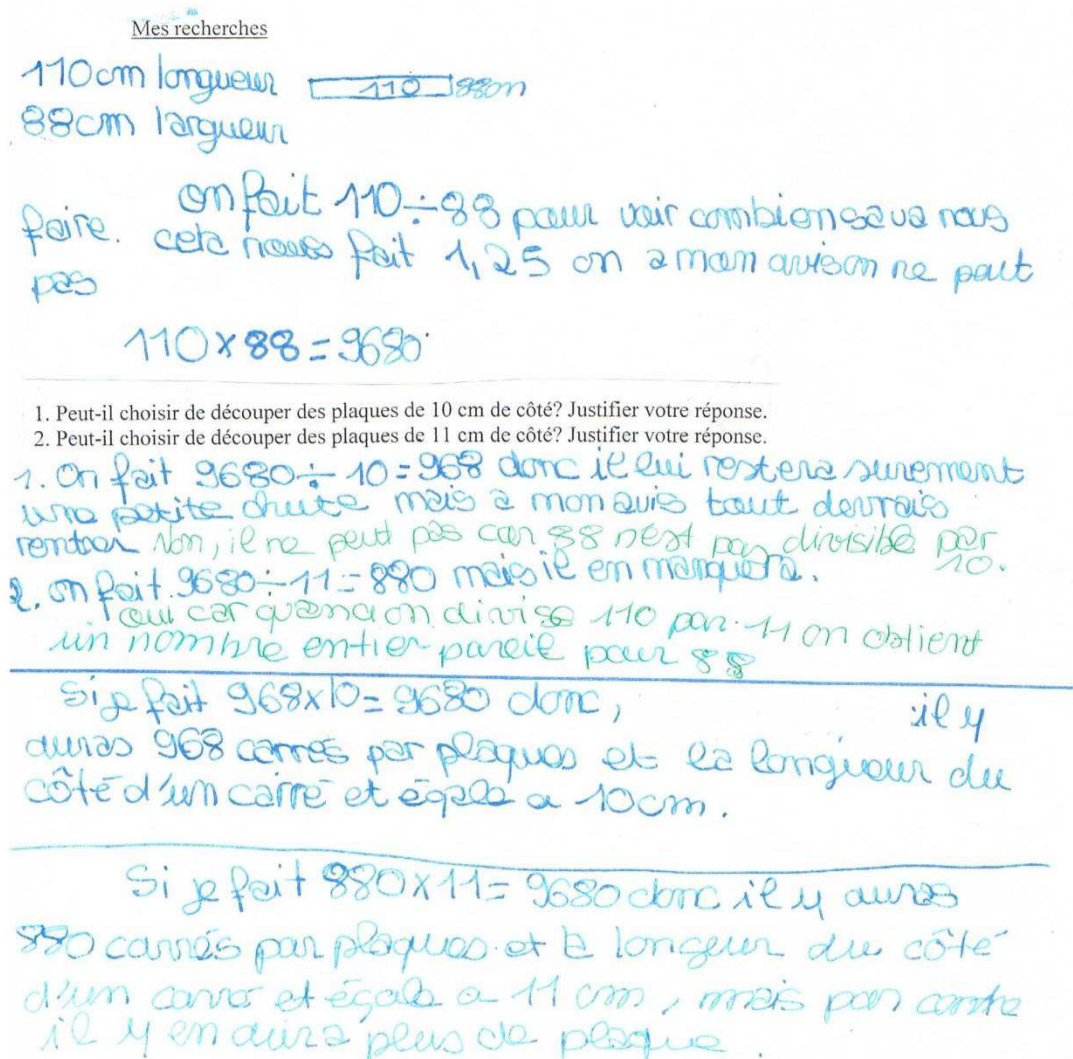 Mes recherches
110cm longueur 110 88cm
88cm largueur
on fait 110÷88 pour voir combien sa va nous
faire. cela nous fait 1,25 on a mon avison ne peut
pas
110×88=9680
1. Peut-il choisir de découper des plaques de 10 cm de côté? Justifier votre réponse.
2. Peut-il choisir de découper des plaques de 11 cm de côté? Justifier votre réponse.
1. On fait 9680÷10=968 donc il lui restera surement
une petite chute mais a mon avis tout devrais
rentrer Non, il ne peut pas car 88 n'est pas divisible par
10.
2. on fait 9680÷11=880 mais il en manquera.
oui car quand on divise 110 par 11 on obtient
un nombre entier pareil pour 88
Si je fait 968×10=9680 donc, il y
auras 968 carrés par plaques et la longueur du
côté d'un carré et égale a 10cm.
Si je fait 880×11=9680 donc il y auras
880 carrés par plaques et la longeur du côté
d'un carré et égale a 11 cm, mais par contre
il y en aura plus de plaque.